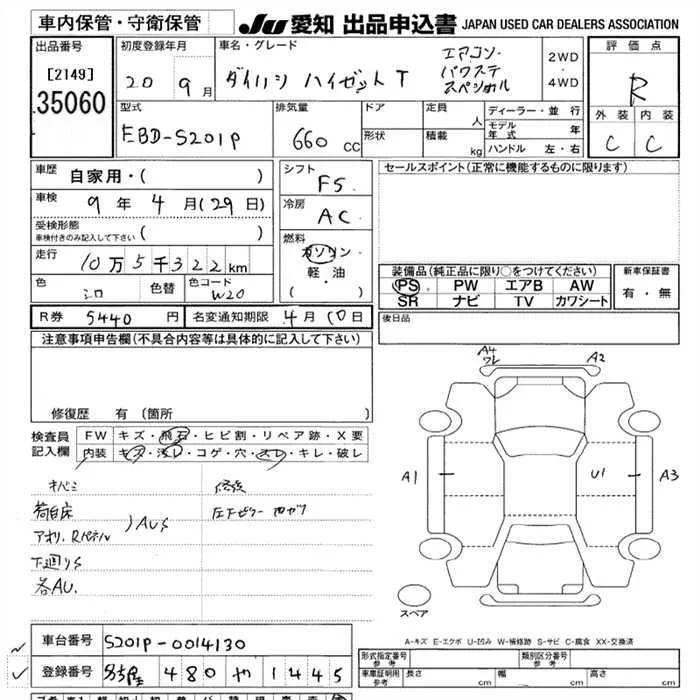 車内保管・守衛保管 JU 愛知 出品申込書 JAPAN USED CAR DEALERS ASSOCIATION
出品番号 初度登録年月 車名・グレード 評価点
[2149] 20 9月 ダイハツ ハイゼットT エアコン・パワステ スペシャル 2WD・4WD R
35060
型式 排気量 ドア 定員 人 ディーラー・並行 外装 内装
EBD-S201P 660 CC 形状 積載 kg モデル年式 年 C C
ハンドル 左・右
車歴 自家用・( ) シフト F5 セールスポイント(正常に機能するものに限ります)
車検 9年 4月(29日) 冷房 AC
受検形態 車検付きのみ記入して下さい ( )
走行 10万5千322km 燃料 ガソリン・軽油・( ) 装備品(純正品に限り○をつけてください) 新車保証書
色 シロ 色替 色コード W20 PS PW エアB AW 有・無
SR ナビ TV カワシート
R券 5440円 名変通知期限 4月10日 後日品
注意事項申告欄(不具合内容等は具体的に記入して下さい)
修復歴 有(箇所
検査員記入欄 FW キズ・飛石・ヒビ割・リペア跡・X要
内装 キズ・汚レ・コゲ・穴・スレ・キレ・破レ
A4 ワレ A2
A1 U1 A3
荷台床
アオリ、Rパネル )AUS
下廻りS
各AU.
スペア
A-キズ E-エクボ U-凹み W-補修跡 S-サビ C-腐食 XX-交換済
車台番号 S201P-0014130 形式指定番号 参考 類別区分番号 参考
登録番号 480 や 1445 車庫証明用 参考 長さ cm 幅 cm 高さ cm